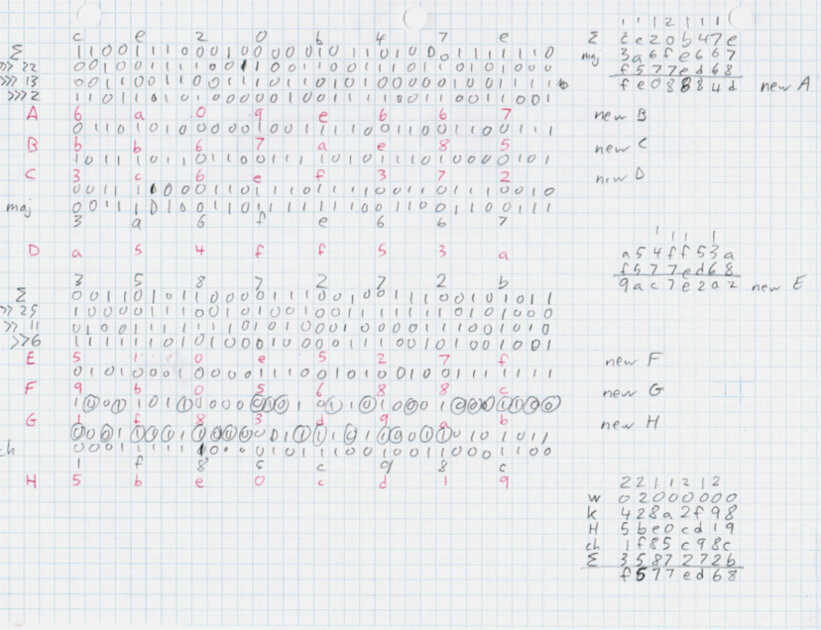 c e 2 0 b 4 7 e
Σ 1 1 0 0 1 1 1 0 0 0 1 0 0 0 0 0 1 0 1 1 0 1 0 0 0 1 1 1 1 1 1 0
>>> 22 0 0 1 0 0 1 1 1 1 0 0 1 1 0 0 1 1 0 0 1 1 1 0 1 1 0 1 0 1 0 0 0
>>> 13 0 0 1 1 0 0 1 1 0 0 1 1 1 0 1 1 0 1 0 1 0 0 0 0 0 1 0 0 1 1 1 1
>>> 2 1 1 0 1 1 0 1 0 1 0 0 0 0 0 1 0 0 1 1 1 1 0 0 1 1 0 0 1 1 0 0 1
A 6 a 0 9 e 6 6 7
0 1 1 0 1 0 1 0 0 0 0 0 1 0 0 1 1 1 1 0 0 1 1 0 0 1 1 0 0 1 1 1
B b b 6 7 a e 8 5
1 0 1 1 1 0 1 1 0 1 1 0 0 1 1 1 1 0 1 0 1 1 1 0 1 0 0 0 0 1 0 1
C 3 c 6 e f 3 7 2
0 0 1 1 1 1 0 0 0 1 1 0 1 1 1 0 1 1 1 1 0 0 1 1 0 1 1 1 0 0 1 0
maj 0 0 1 1 1 0 1 0 0 1 1 0 1 1 1 1 1 1 1 0 0 1 1 0 0 1 1 0 0 1 1 1
3 a 6 f e 6 6 7
D a 5 4 f f 5 3 a
3 5 8 7 2 7 2 b
Σ 0 0 1 1 0 1 0 1 1 0 0 0 0 1 1 1 0 0 1 0 0 1 1 1 0 0 1 0 1 0 1 1
>>> 25 1 0 0 0 0 1 1 1 0 0 1 0 1 0 0 1 0 0 1 1 1 1 1 1 1 0 1 0 1 0 0 0
>>> 11 0 1 0 0 1 1 1 1 1 1 1 0 1 0 1 0 0 0 1 0 0 0 0 1 1 1 0 0 1 0 1 0
>>6 1 1 1 1 1 1 0 1 0 1 0 0 0 1 0 0 0 0 1 1 1 0 0 1 0 1 0 0 1 0 0 1
E 5 1 0 e 5 2 7 f
0 1 0 1 0 0 0 1 0 0 0 0 1 1 1 0 0 1 0 1 0 0 1 0 0 1 1 1 1 1 1 1
F 9 b 0 5 6 8 8 c
1 0 0 1 1 0 1 1 0 0 0 0 0 1 0 1 0 1 1 0 1 0 0 0 1 0 0 0 1 1 0 0
G 1 f 8 3 d 9 a b
0 0 0 1 1 1 1 1 1 0 0 0 0 0 1 1 1 1 0 1 1 0 0 1 1 0 1 0 1 0 1 1
ch 0 0 0 1 1 1 1 1 1 0 0 0 0 1 0 1 1 1 0 0 1 0 0 1 1 0 0 0 1 1 0 0
1 f 8 5 c 9 8 c
H 5 b e 0 c d 1 9
1 1 1 2 1 1 1
Σ c e 2 0 b 4 7 e
maj 3 a 6 f e 6 6 7
f 5 7 7 e d 6 8
f e 0 8 8 8 4 d new A
new B
new C
new D
1 1 1 1
a 5 4 f f 5 3 a
f 5 7 7 e d 6 8
9 a c 7 e 2 a 2 new E
new F
new G
new H
2 2 1 1 2 1 2
w 0 2 0 0 0 0 0 0
k 4 2 8 a 2 f 9 8
H 5 b e 0 c d 1 9
ch 1 f 8 5 c 9 8 c
Σ 3 5 8 7 2 7 2 b
f 5 7 7 e d 6 8